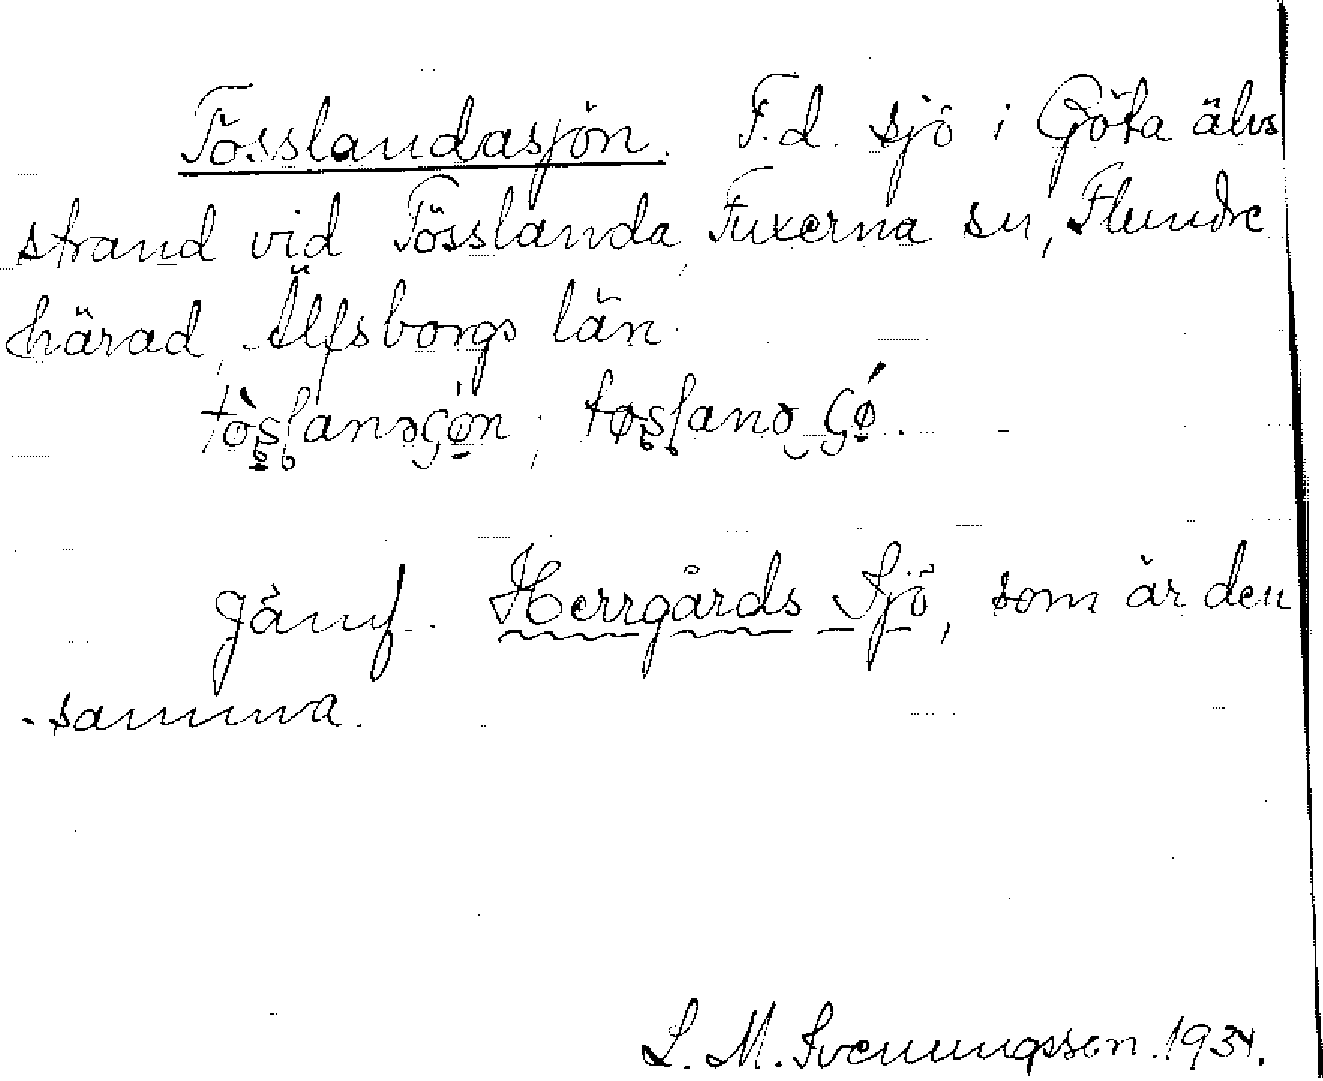 Tösslandasjön. F.d. sjö i Göta älvs
strand vid Tösslanda, Fuxerna sn, Flundre
härad, Älfsborgs län.
Jämf. Herrgårds Sjö, som är den
samma.
S. M. Svenungsson. 1934.